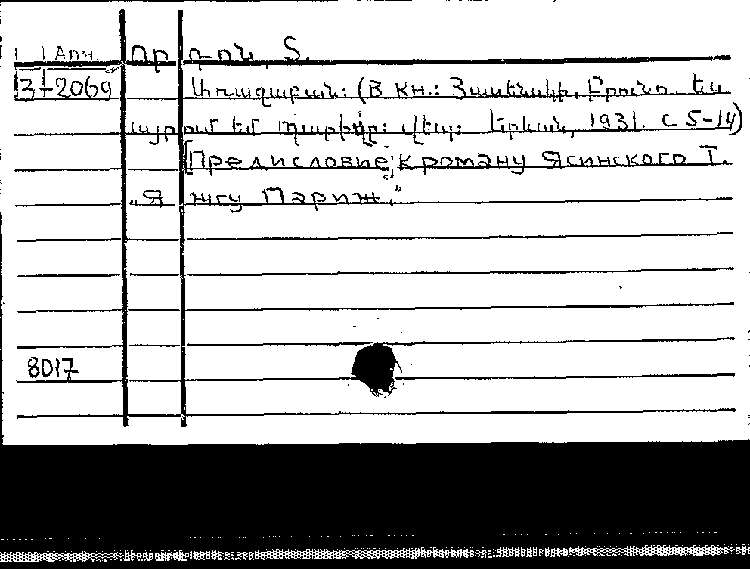 Арм. Որդոն, Տ.
3-2069 Առաջաբան: (В кн.: Յասենսկի, Բրունո Ես
այրում եմ Պարիզը: Վեպ: Երևան, 1931. с 5-14)
[Предисловие к роману Ясинского Т.
„Я жгу Париж."
8017